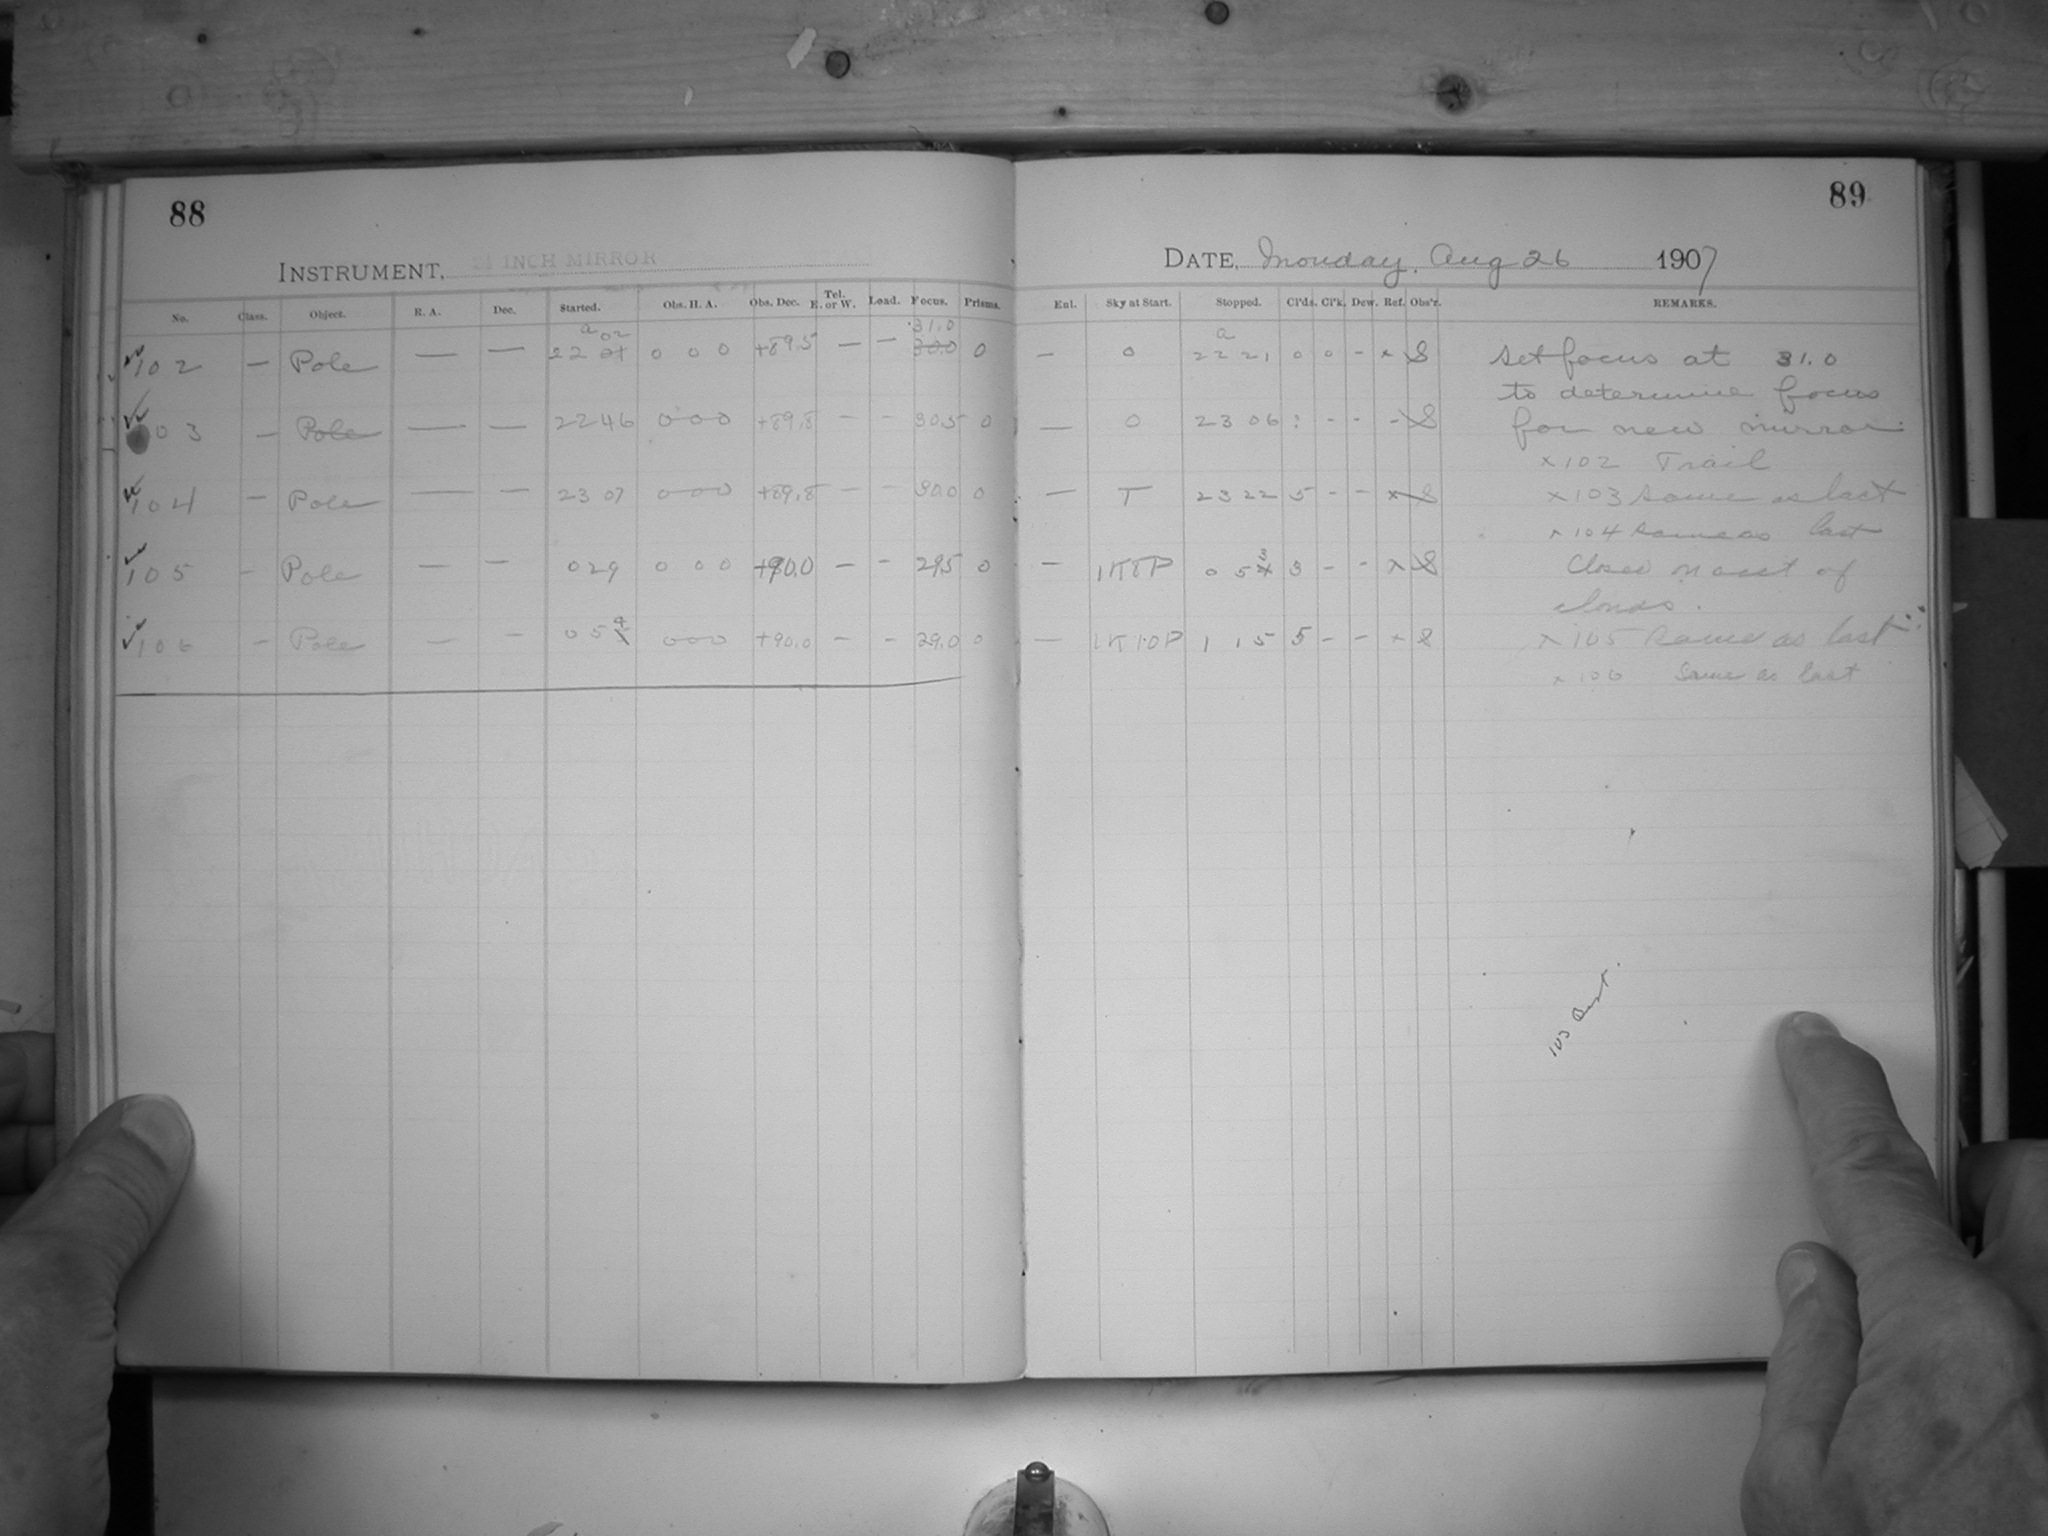 88
INSTRUMENT, INCH MIRROR
No. Class. Object. R. A. Dec. Started. Obs. H. A. Obs. Dec. Tel. E. or W. Load. Focus. Prisms.
a 02 31.0
102 — Pole — — 22 01 0 0 0 +89.5 — — 30.0 0
103 — Pole — — 22 46 0 0 0 +89.8 — — 30.5 0
104 — Pole — — 23 07 0 0 0 +89.8 — — 30.0 0
105 — Pole — — 0 29 0 0 0 +90.0 — — 29.5 0
106 — Pole — — 0 5 4 0 0 0 +90.0 — — 29.0 0
89
DATE, Monday, Aug 26 1907
Enl. Sky at Start. Stopped. Cl'ds. Cl'k. Dew. Ref. Obs'r. REMARKS.
a
— 0 22 21 0 0 - x S Set focus at 31.0
to determine focus
— 0 23 06 : - - - S for new mirror
x 102 Trail
— T 23 22 5 - - x S x 103 Same as last
x 104 Same as last
— 1K8P 0 5 3 3 - - x S Closed on acct of
clouds.
— 1K10P 1 15 5 - - x S x 105 Same as last
x 106 Same as last
103 Best.